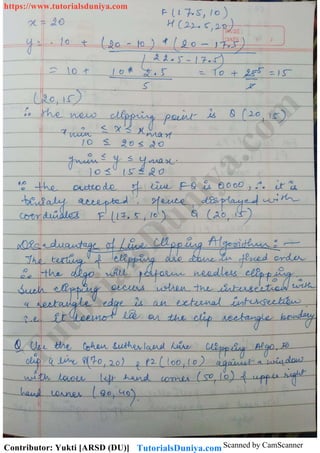 https://www.tutorialsduniya.com
F(17.5, 10)
x = 20 H(22.5, 20)
y = 10 + (20 - 10) * (20 - 17.5)
(22.5 - 17.5)
= 10 + 10 * 2.5 = 10 + =15
5
(20, 15)
∴ the new clipping point is Q (20, 15)
xmin ≤ x ≤ xmax
10 ≤ 20 ≤ 20
ymin ≤ y ≤ ymax
10 ≤ 15 ≤ 20
∵ the outcode of line FQ is 0000, ∴ it is
accepted. Hence displayed with
coordinates F (17.5, 10) Q (20, 15)
Disadvantage of Line Clipping Algorithm: —
The testing & clipping are done in fixed order
∴ the algo will perform needless clipping
Such clipping occurs when the intersection with
a rectangle edge is an external intersection
i.e. it on the clip rectangle boundary
Q. Use the Cohen Sutherland line Clipping Algo. to
clip a line (70, 20) & P2 (100, 10) against a window
with lower left hand corner (50, 10) & upper right
hand corner (80, 40).
Contributor: Yukti [ARSD (DU)] TutorialsDuniya.com Scanned by CamScanner